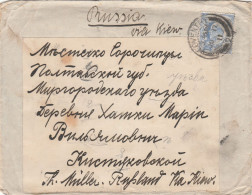 Russia
via Kiew
Мѣстечко Сорочинцы
Полтавской губ.
Миргородскаго уѣзда
Деревня Хатки Маріи
Вильямовнѣ
Кистяковской
Russland Via Kiew.